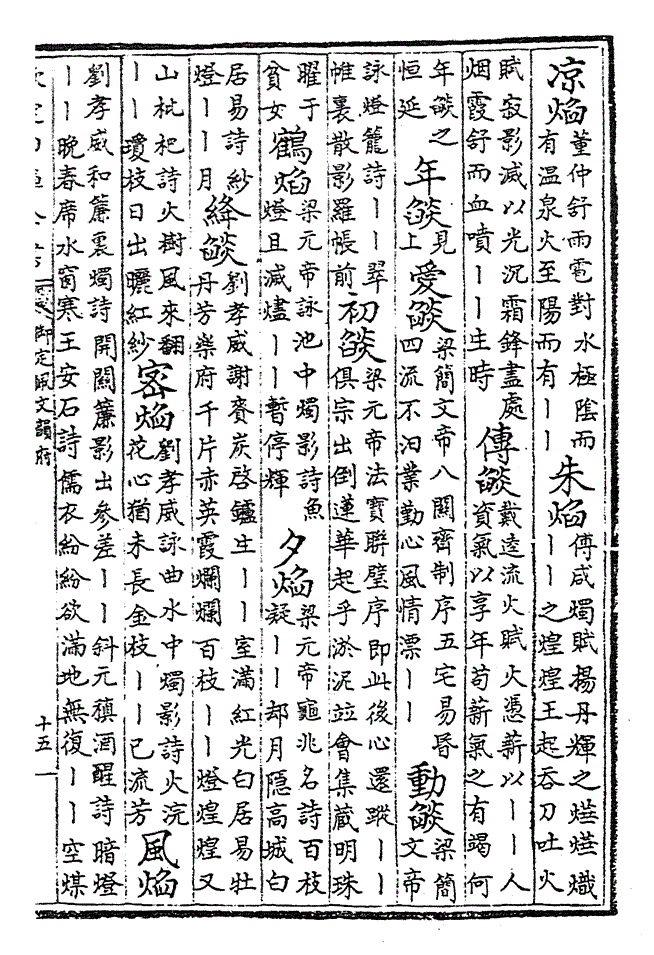 凉焰董仲舒雨雹對水極陰而有温泉火至陽而有丨丨朱焰傅咸燭賦揚丹輝之煒煒熾丨丨之煌煌王起吞刀吐火
賦寂影滅以光沉霜鋒盡處烟霞舒而血噴丨丨生時傳燄戴逵流火賦火憑薪以丨丨人資氣以享年苟薪氣之有竭何
年燄之恒延年燄見上愛燄梁簡文帝八關齊制序五宅易昏四流不汩業勤心風情漂丨丨動燄梁簡文帝
詠燈籠詩丨丨翠帷裏散影羅帳前初燄梁元帝法寶聯璧序即此後心還蹤丨丨俱宗出倒蓮華起乎淤泥竝會集藏明珠
曜于貧女鶴焰梁元帝詠池中燭影詩魚燈且滅燼丨丨暫停輝夕焰梁元帝龜兆名詩百枝凝丨丨却月隱高城白
居易詩紗燈丨丨月絳燄劉孝威謝賚炭啓鑪生丨丨室滿紅光白居易牡丹芳樂府千片赤英霞爛爛百枝丨丨燈煌煌又
山枇杷詩火樹風來翻丨丨瓊枝日出曬紅紗密焰劉孝威詠曲水中燭影詩火浣花心猶未長金枝丨丨已流芳風焰
劉孝威和簾裏燭詩開關簾影出參差丨丨斜元稹酒醒詩暗燈丨丨晚春席水窗寒王安石詩儒衣紛紛欲滿地無復丨丨空煤
御定佩文韻府
十五